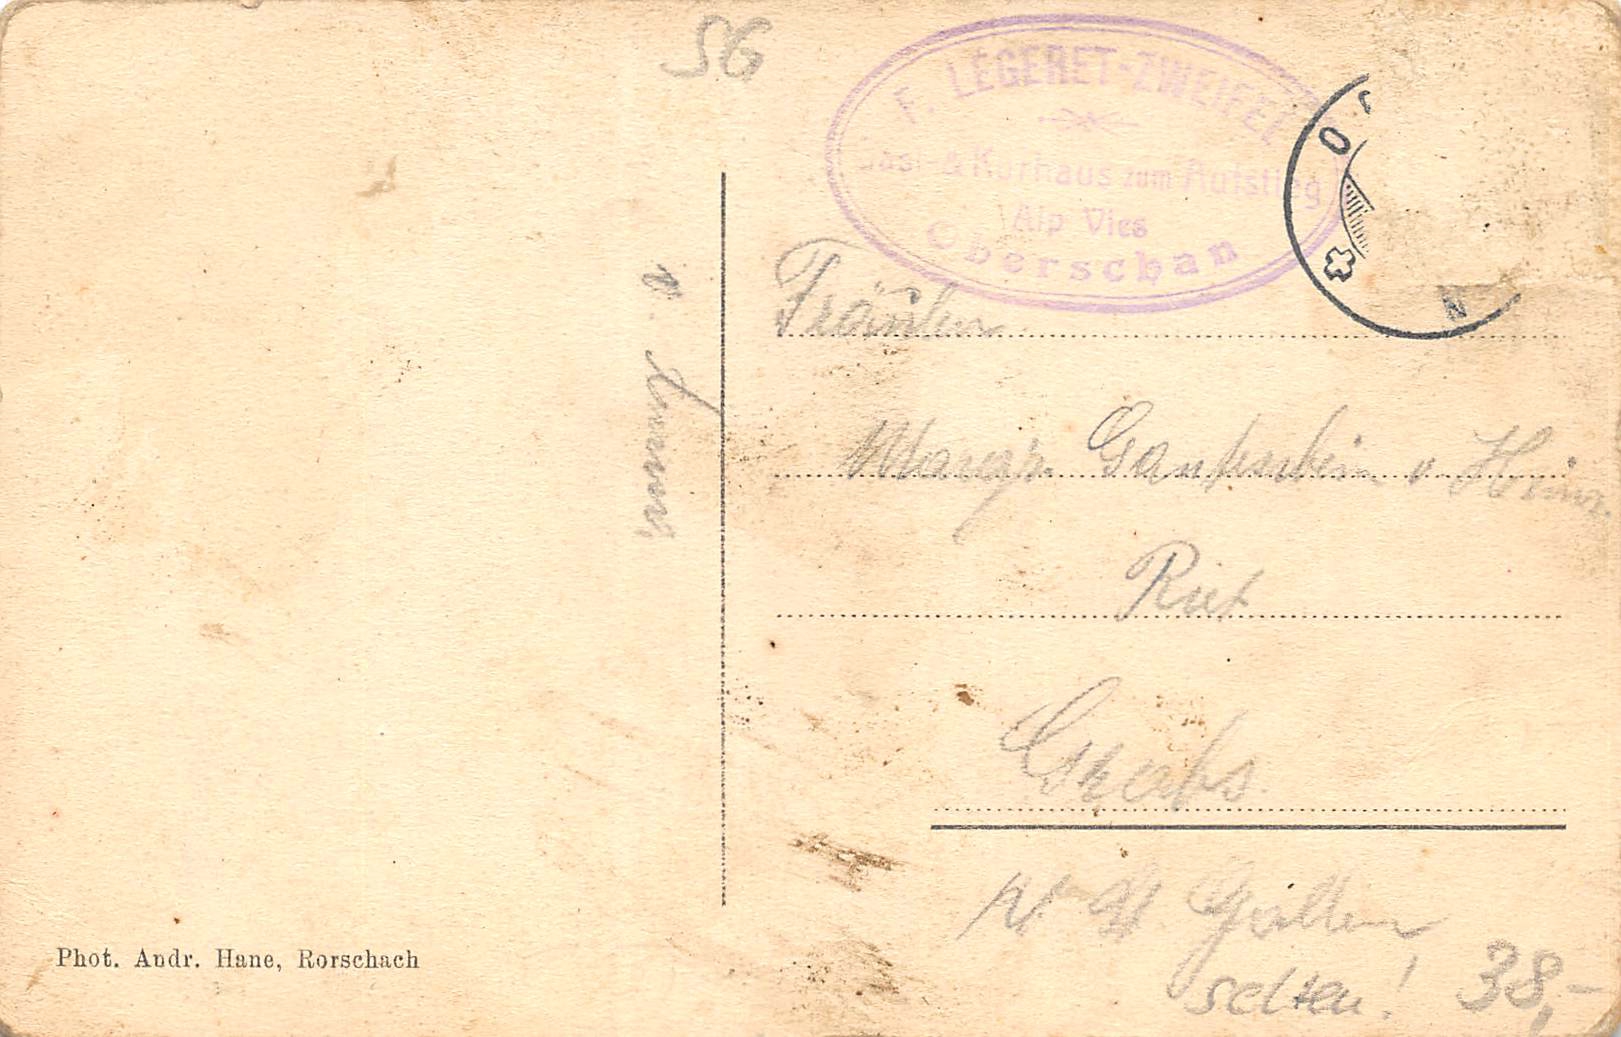 SG
F. LEGERET-ZWEIFEL
Gast- & Kurhaus zum Aufstieg
Alp Vies
Oberschan
Fräulein
Gantenbein v.
Grabs.
Gallen
selten! 38,-
Phot. Andr. Hane, Rorschach